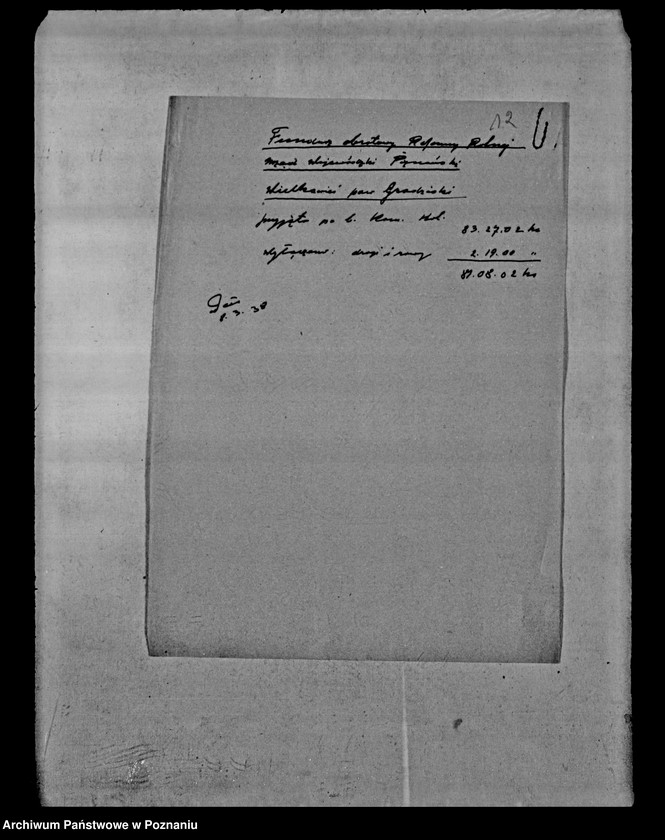 12
Fundusz obrotowy Reformy Rolnej
Urząd Wojewódzki Poznański
Wielkawieś pow. Grodziski
przyjęto po b. Kom. Kol.
83.27.02 ha
wyłączono: drogi i rowy 2.19.00 "
81.08.02 ha
8.3.38
Archiwum Państwowe w Poznaniu